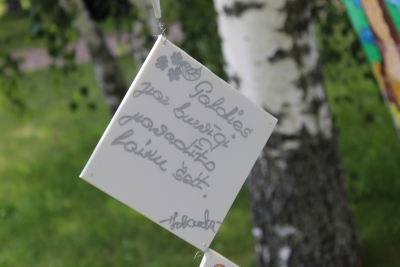 Paldies
par burvīgi
pavadīto
laiku šeit.